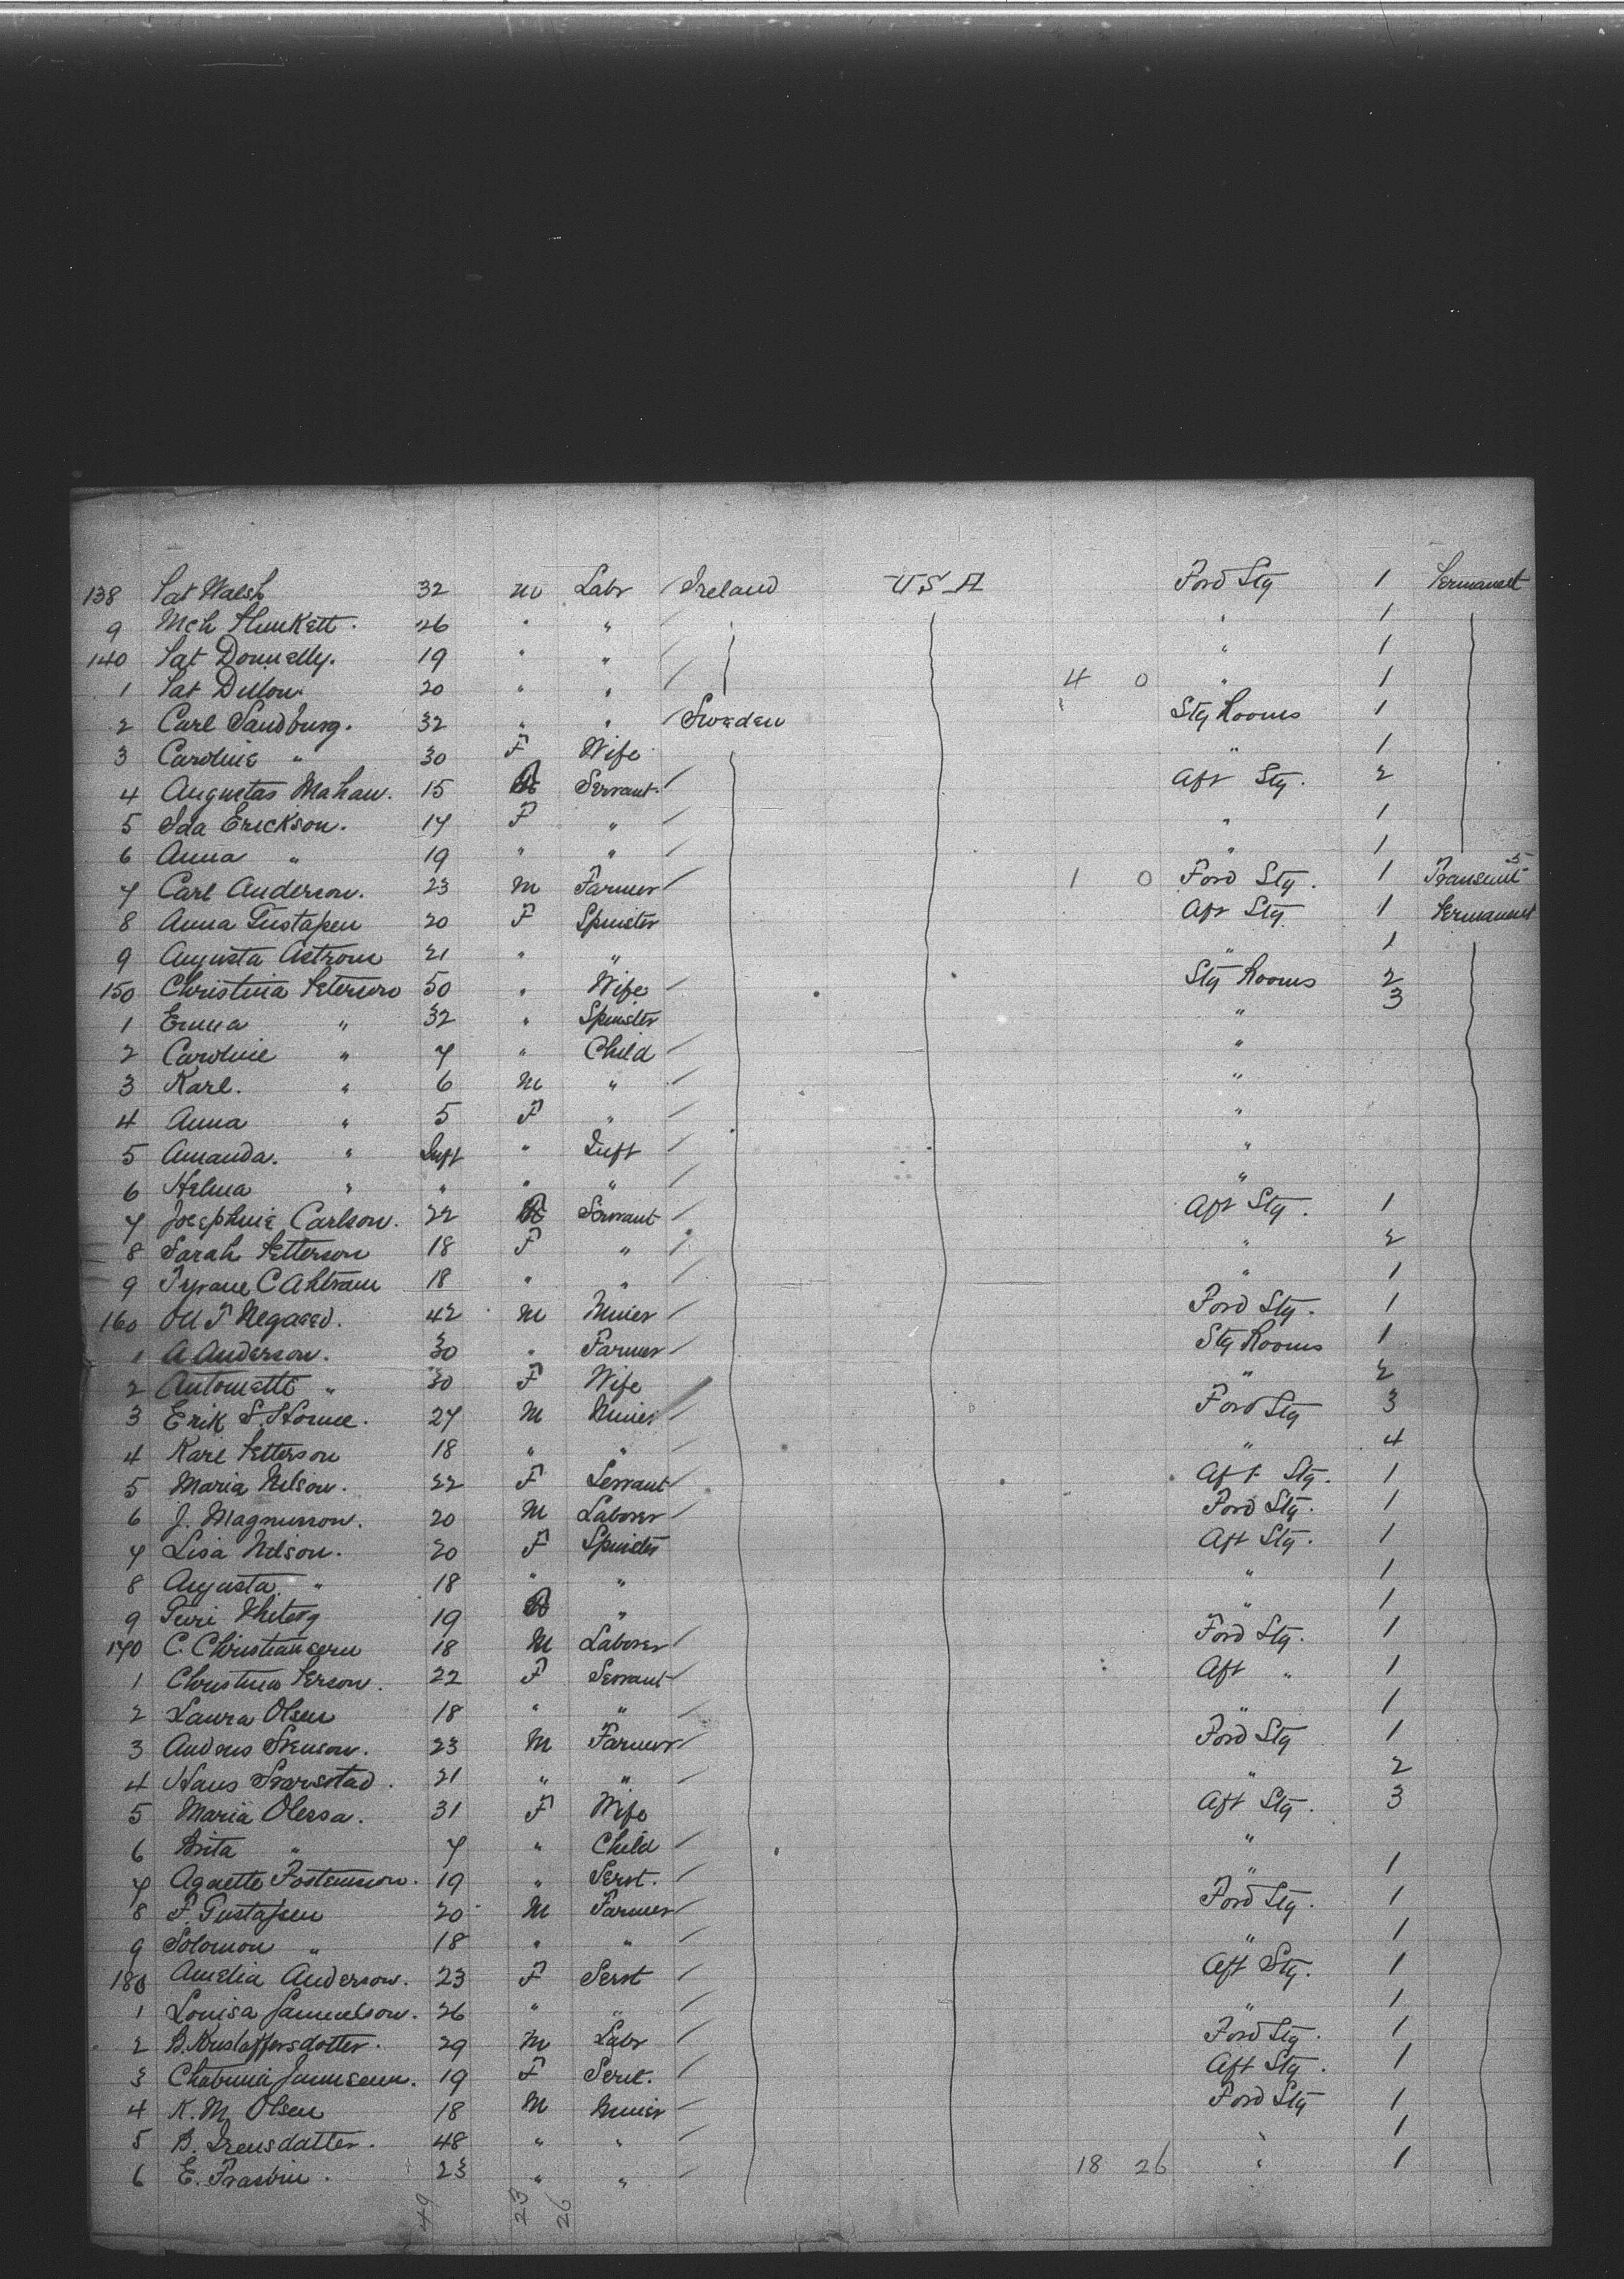 138 Pat Walsh 32 m Labr Ireland U S A Ford Stg 1 Permanent
9 Mch Plunkett. 26 " " " 1
140 Pat Donnelly. 19 " " " 1
1 Pat Dillon 20 " " 4 0 " 1
2 Carl Sandburg. 32 " " Sweden Stg Rooms 1
3 Caroline " 30 F Wife " 1
4 Augustas Mahan. 15 Servant Aft Stg. 2
5 Ida Erickson. 17 F " " 1
6 Anna " 19 " " " 1
7 Carl Anderson. 23 M Farmer 1 0 Ford Stg. 1 Transient
8 Anna Gustafsen 20 F Spinster Aft Stg 1 Permanent
9 Augusta Astrom 21 " " " 1
150 Christina Peterson 50 " Wife Stg Rooms 2
1 Emma " 32 " Spinster " 3
2 Caroline " 7 " Child "
3 Karl. " 6 M " "
4 Anna " 5 F " "
5 Amanda. " Inft " Inft "
6 Helma " " " " "
7 Josephine Carlson. 22 Servant Aft Stg. 1
8 Sarah Petterson 18 F " " 2
9 C Ahlram 18 " " " 1
160 Oll F Negaard. 42 M Miner Ford Stg. 1
1 A Anderson. 30 " Farmer Stg Rooms 1
2 Antonette " 30 F Wife " 2
3 Erik S. Home. 27 M Miner Ford Stg 3
4 Karl Petterson 18 " " " 4
5 Maria Nilson. 22 F Servant Aft Stg. 1
6 J. Magnusson. 20 M Laborer Ford Stg. 1
7 Lisa Nilson. 20 F Spinster Aft Stg. 1
8 Augusta " 18 " " " 1
9 Guri 19 " " 1
170 C. Christiansen 18 M Laborer Ford Stg. 1
1 Christina Person. 22 F Servant Aft " 1
2 Laura Olsen 18 " " " 1
3 Andrus Svenson. 23 M Farmer Ford Stg 1
4 Hans 21 " " " 2
5 Maria Olessa. 31 F Wife Aft Stg. 3
6 Brita " 7 " Child "
7 Agnette 19 " Servt. " 1
8 F. Gustafsen 20 M Farmer Ford Stg. 1
9 Solomon " 18 " " " 1
180 Amelia Anderson. 23 F Servt Aft Stg. 1
1 Louisa Samuelson. 26 " " " 1
2 B. Kristoffersdotter. 29 M Labr Ford Stg. 1
3 19 F Servt. Aft Stg. 1
4 K. M. Olsen 18 M Miner Ford Stg 1
5 B. 48 " " " 1
6 E. 23 " " 18 26 " 1
49 23 26